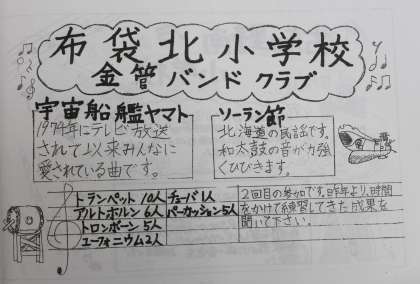 布袋北小学校
金管バンドクラブ
宇宙船艦ヤマト
1974年にテレビ放送
されて以来みんなに
愛されている曲です。
ソーラン節
北海道の民謡です。
和太鼓の音が力強
くひびきます。
トランペット 10人 チューバ 1人
アルトホルン 6人 パーカッション 5人
トロンボーン 5人
ユーフォニウム 2人
2回目の参加です。昨年より、時間
をかけて練習してきた成果を
聞いて下さい。